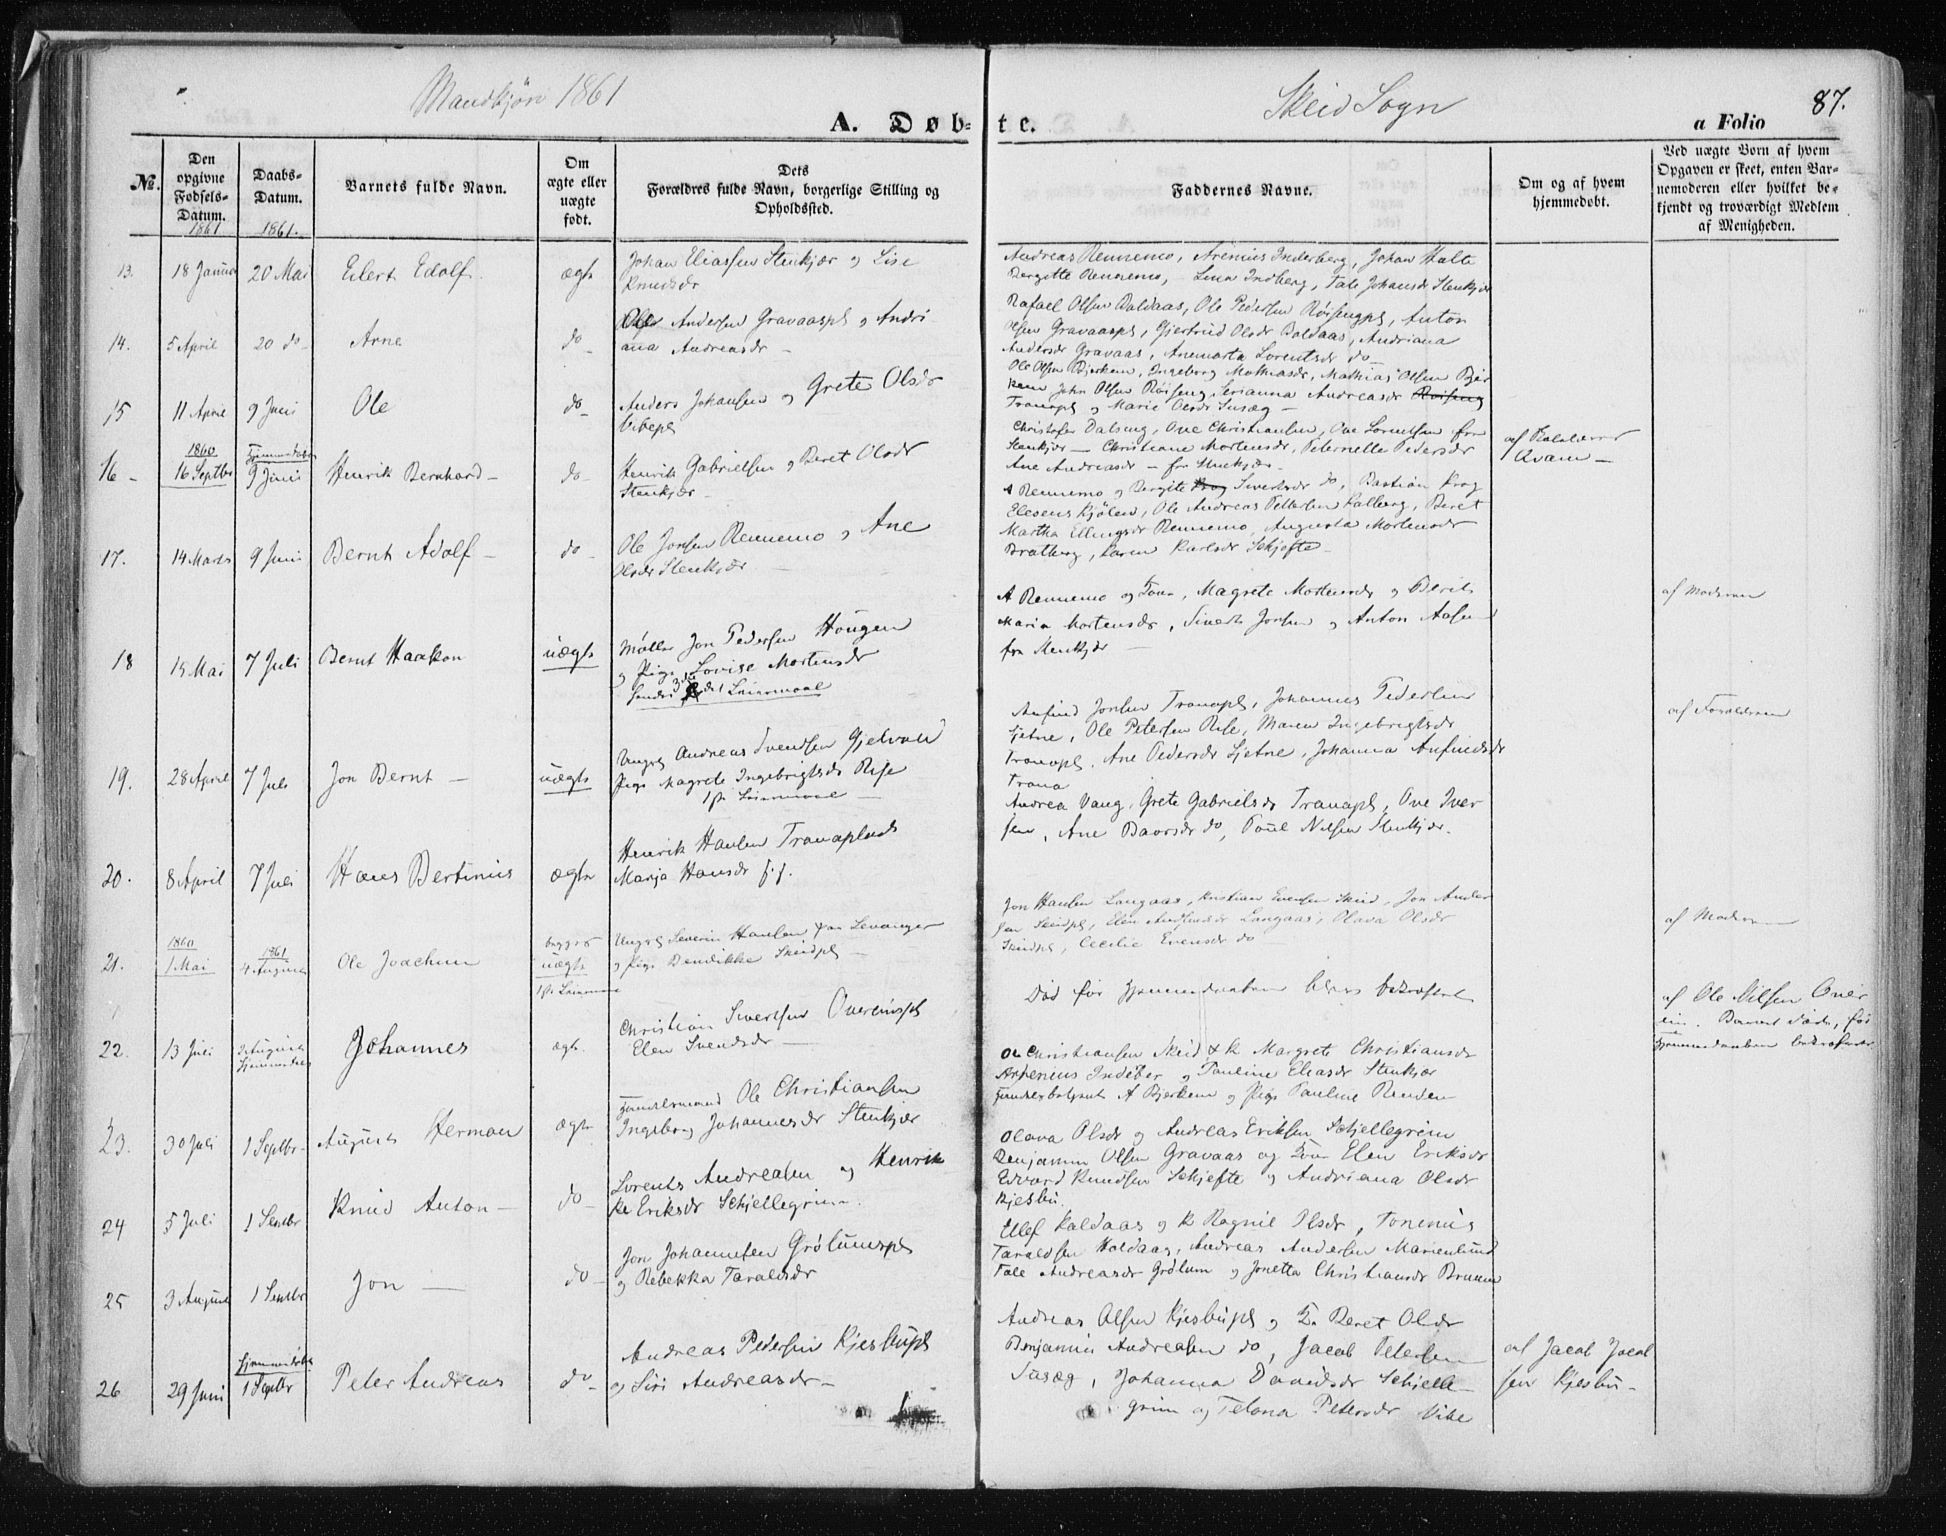 Mandkjøn 1861
Skeid Sogn
87.
A. Døbte.
a Folio
No.
Den opgivne Fødsels-Datum.
1861
Daabs-Datum.
1861.
Barnets fulde Navn.
Om ægte eller uægte født.
Dets Forældres fulde Navn, borgerlige Stilling og Opholdssted.
Faddernes Navne.
Om og af hvem hjemmedøbt.
Ved uægte Børn af hvem Opgaven er skeet, enten Barnemoderen eller hvilket bekjendt og troværdigt Medlem af Menigheden.
13. 18 Januar 20 Mai Eilert Edolf ægte
Johan Eliassen Stenkjær og Lise
Knudsdr
Andreas Rennemo, Arenius Inderberg, Johan Halte
Bergitte Rennemo, Lina Indberg, Tale Johansdr Stenkjær
14. 5 April 20 do Arne do
Ole Andersen Gravaaspl og Andri-
ana Andreasdr
Rafael Olsen Kaldaas, Ole Pedersen Røisengpl, Anton
Olsen Gravaaspl, Gjertrud Olsdr Kaldaas, Andriana
Andersdr Gravaas, Anemarta Lorentsdr do
15 11 April 9 Juni Ole do
Anders Johansen og Grete Olsdr
Vibepl
Ole Olsen Bjerkem, Ingeborg Mathiasdr, Mathias Olsen Bjer
kem John Olsen Røiseng Serianna Andreasdr Røiseng
Tranapl og Marie Olsdr Susæg
16 1860 16 Septbr Hjemmedøbt 9 Juni Henrik Bernhard do
Henrik Gabrielsen og Beret Olsdr
Stenkjær
Christofer Dalseng, Ove Christiansen, Ove Lorentsen fra
Stenkjær Christiane Mortensdr, Peternelle Pedersdr
Ane Andreasdr fra Stenkjær
af
Kvam
17. 14 Marts 9 Juni Bernt Adolf do
Ole Jonsen Rennemo og Ane
Olsdr Stenkjær
A Rennemo og Bergite Sivertsdr do, Bastian Krog
Elesens Kjølen, Ole Andreas Pettersen Falberg, Beret
Martha Ellingsdr Rennemo, Augusta Mortensdr
Bratberg, Karen Karlsdr Schjefte
18 15 Mai 7 Juli Bernt Haakon uægte
Møller Jon Pedersen Hougen
og Pige Lovise Mortensdr
Leiermaal
A Rennemo og Kone, Magrete Mortensdr og Berit
Maria Mortensdr, Sivert Jonsen og Anton Aasen
fra Stenkjær
af Moderen
19. 28 April 7 Juli Jon Bernt uægte
Ungkl Andreas Svendsen Gjelvold
Pige Magrete Ingebrigtsdr Rise
1ste Leiermaal
Anfind Jonsen Tranapl, Johannes Pedersen
Sjetne, Ole Petersen Rise, Maren Ingebrigtsdr
Tranapl, Ane Pedersdr Sjetne, Johanna Anfindsdr
Trana
af Forældrene
20. 8 April 7 Juli Hans Bertinius ægte
Henrik Hansen Tranaplads
Marja Hansdr
Andrea Vang, Grete Gabrielsdr Tranapl, Ove Iver
sen, Ane Baarsdr do, Poul Nilsen Stenkjær.
21. 1860 1 Mai 1861 4 August Ole Joachim begges uægte 1ste Leiermaal
Ungkl Severin Hansen fra Levanger
og Pige Bendikke Skeidpl
Jon Hansen Langaas, Kristian Evensen Skeid, Jon Ander
sen Skeidpl, Elen Langaas, Olava Olsdr
Skeidpl, Cecilie Evensdr do
af Moderen
22. 13 Juli August Hjemmedøbt Johannes ægte
Christian Sivertsen Overeinspl
Elen Svendsdr
Død før Hjemmedaaben blev bekræftet
af Ole Nilsen Over
ein. Barnet døde, før
Hjemmedaaben bekræftedes
23. 30 Juli 1 Septbr August Herman ægte
Handelsmand Ole Christiansen
Ingeborg Johannesdr Stenkjær
Ole Christiansen Skeid & K Margrete Christiansdr
Arsenius Indeber og Pauline Eliasdr Stenkjær
Handelsbetjent A Bjerkem og Pige Pauline Renden
24 5 Juli 1 Septbr Knud Anton do
Lorents Andreasen og Henrik
ke Eriksdr Schjellegrim
Olava Olsdr og Andreas Eriksen Schjellegrim
Benjamin Olsen Gravaas og Kone Elen Eriksdr
Edvard Knudsen Schjefte og Andriana Olsdr
Kjesbu
25 3 August 1 Septbr Jon do
Jon Johannesen Grølumspl
og Rebekka Taraldsdr
Ellef Kaldaas og K Ragnil Olsdr, Tonenius
Taraldsen Haldaas, Andreas Andersen Marienlund
Tale Andreasdr Grølum og Jonetta Christiansdr Brunem
26 29 Juni Hjemmedøbt 1 Septbr Peter Andreas do
Andreas Pedersen Kjesbupl
og Siri Andreasdr
Andreas Olsen Kjesbupl og K Beret Olsdr
Benjamin Andreasen do, Jacob Petersen
Susæg, Johanna Davidsdr Schjelle-
grim og Telona Petersdr Vibe
af Jacob Jacob
sen Kjesbu